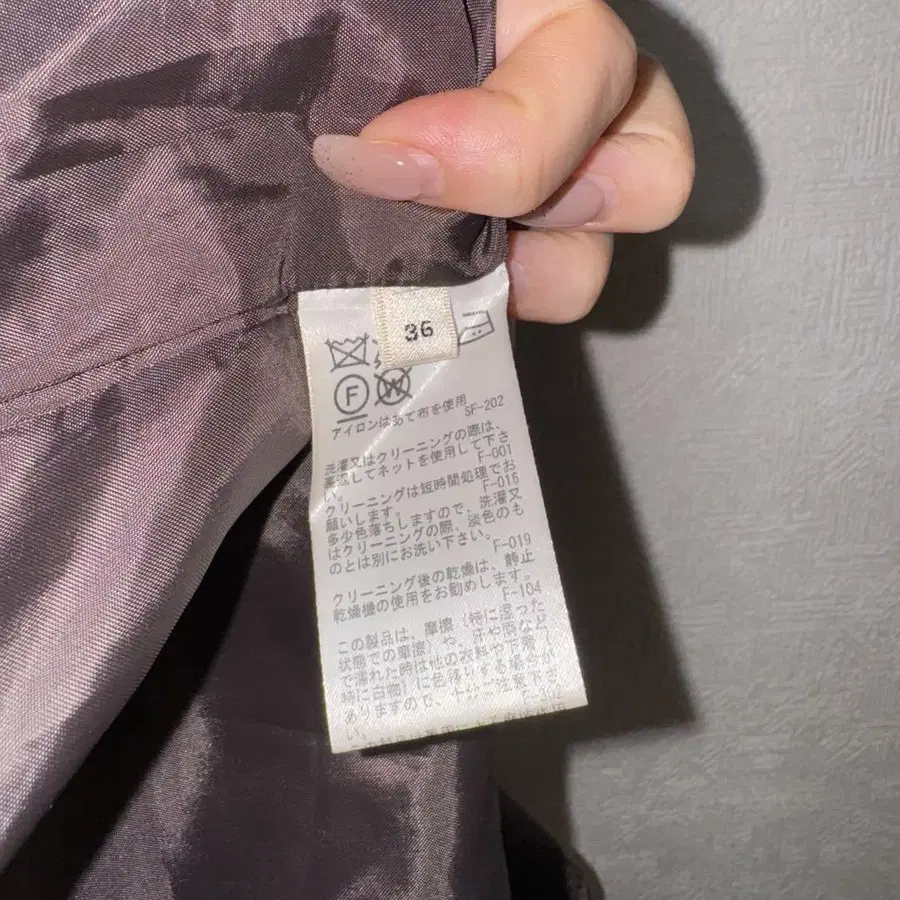 36
F
W
アイロンはあて布を使用
SF-202
洗濯又はクリーニングの際は、
裏返してネットを使用して下さ
い。
F-001
クリーニングは短時間処理でお
願いします。
F-016
多少色落ちしますので、洗濯又
はクリーニングの際、淡色のも
のとは別にお洗い下さい。
F-019
クリーニング後の乾燥は、静止
乾燥機の使用をお勧めします。
F-104
この製品は、摩擦(特に湿った
状態での摩擦)や、汗や雨など
で濡れた時は他の衣料や下着(
特に白物)に色移りする場合が
ありますので、十分ご注意下さ
い。